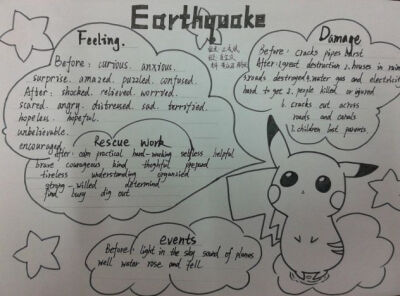 Earthquake
Feeling.
Before: curious. anxious.
surprise. amazed. puzzled. confused.
After: shocked. relieved. worried.
scared. angry. distressed. sad. terrified.
hopeless. hopeful.
unbelievable.
encouraged.
Damage
Before: cracks pipes burst
After: 1.great destruction 2.houses in ruins
3.roads destroyed 4.water gas and electricity
hard to get 5. people killed or injured
6. cracks cut across
roads and canals
7. children lost parents.
Rescue work
After: calm practical hard-working selfless helpful
brave courageous kind
tireless understanding organized
strong-willed determind
find bury dig out
events
Before: light in the sky sound of planes
well water rose and fell